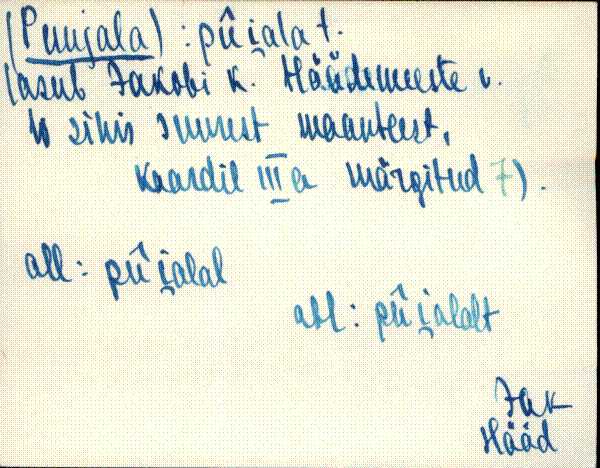 (Puujala) : pûi̯ala t.
(asub Jakobi k. Häädemeeste v.
lo sihis suurest maanteest,
kaardil III a märgitud 7).
all : pûi̯alal
abl : pûi̯alalt
Jak
Hääd